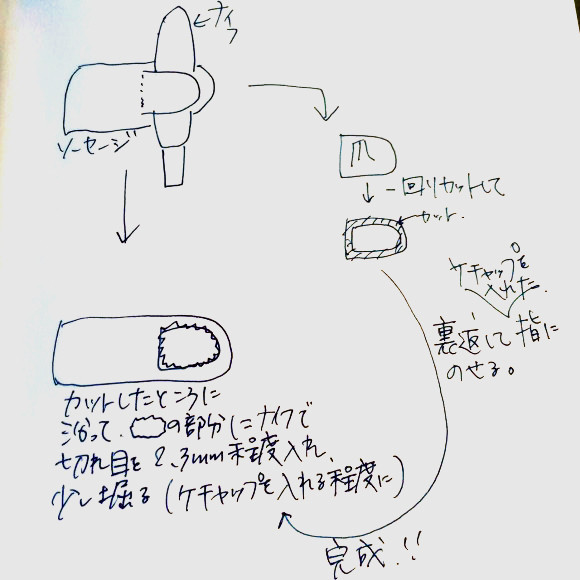 ナイフ
ソーセージ
爪
一回りカットして
カット.
ケチャップを
入れた.
裏返して指に
のせる。
カットしたところに
沿って、の部分にナイフで
切れ目を2、3mm程度入れ、
少し掘る(ケチャップを入れる程度に)
完成!!